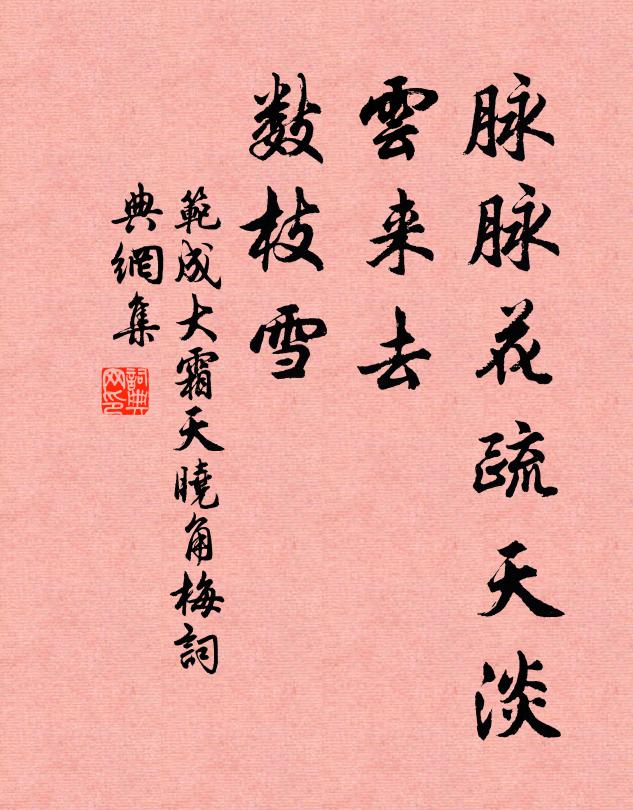 脉脉花疏天淡
雲来去
数枝雪
範成大霜天曉角梅詞
典網集
詞典
网印